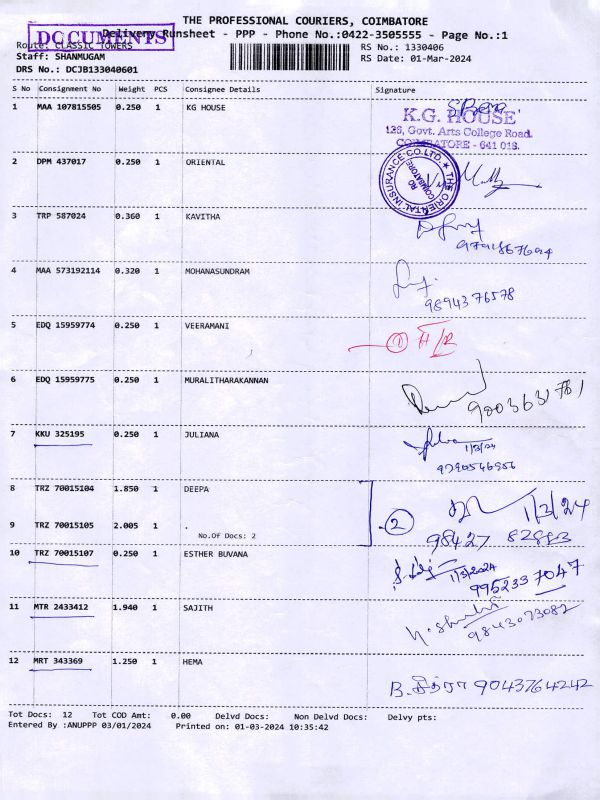 THE PROFESSIONAL COURIERS, COIMBATORE
DOCUMENTS
Delivery Runsheet - PPP - Phone No.:0422-3505555 - Page No.:1
Route: CLASSIC TOWERS RS No.: 1330406
Staff: SHANMUGAM RS Date: 01-Mar-2024
DRS No.: DCJB133040601
S No Consignment No Weight PCS Consignee Details Signature
1 MAA 107815505 0.250 1 KG HOUSE
K.G. HOUSE
126, Govt. Arts College Road,
COIMBATORE - 641 018.
2 DPM 437017 0.250 1 ORIENTAL
THE ORIENTAL INSURANCE CO.LTD.
RO
COIMBATORE
3 TRP 587024 0.360 1 KAVITHA
4 MAA 573192114 0.320 1 MOHANASUNDRAM
9894376578
5 EDQ 15959774 0.250 1 VEERAMANI
6 EDQ 15959775 0.250 1 MURALITHARAKANNAN
9003631781
7 KKU 325195 0.250 1 JULIANA
1/3/24
9790546956
8 TRZ 70015104 1.850 1 DEEPA
1/3/24
9 TRZ 70015105 2.005 1 .
No.Of Docs: 2
2
98427 82883
10 TRZ 70015107 0.250 1 ESTHER BUVANA
1/3/2024
9952337047
11 MTR 2433412 1.940 1 SAJITH
9843073082
12 MRT 343369 1.250 1 HEMA
B. சித்ரா 9043764242
Tot Docs: 12 Tot COD Amt: 0.00 Delvd Docs: Non Delvd Docs: Delvy pts:
Entered By :ANUPPP 03/01/2024 Printed on: 01-03-2024 10:35:42